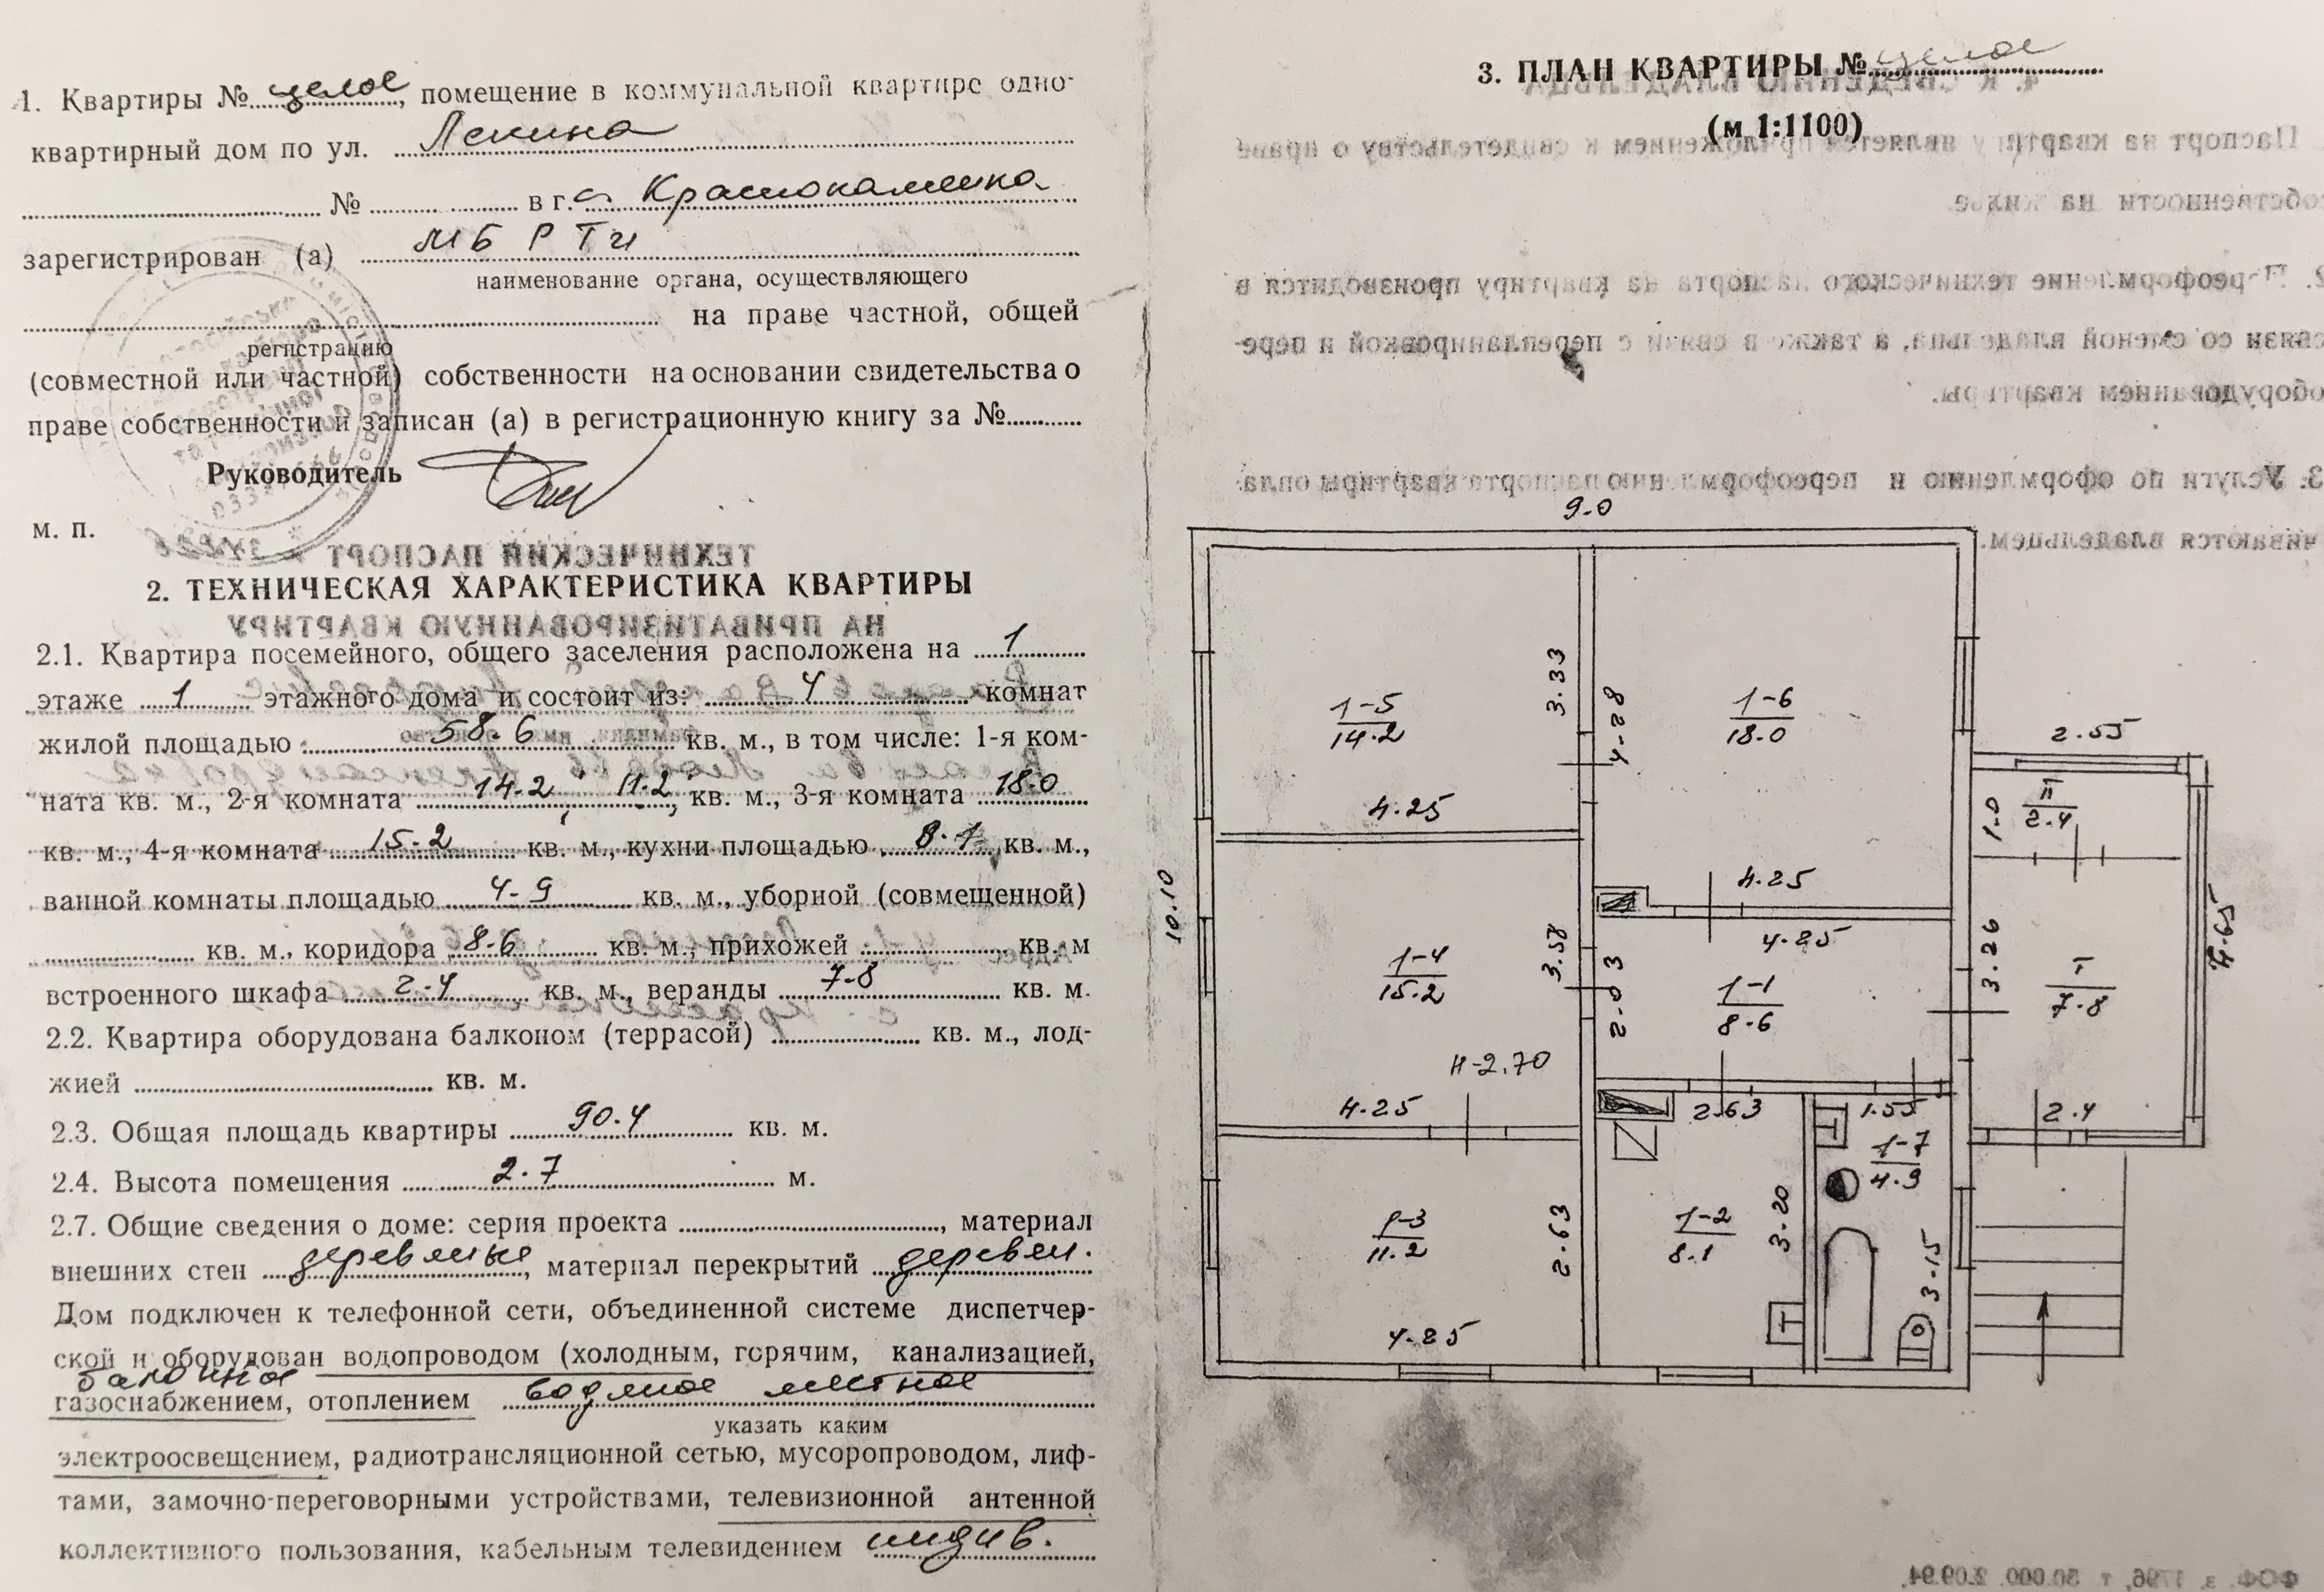 1. Квартиры № целое, помещение в коммунальной квартире одно-
квартирный дом по ул. Ленина
№ в г. с. Краснокаменка
зарегистрирован (а) МБРТИ
наименование органа, осуществляющего
на праве частной, общей
регистрацию
(совместной или частной) собственности на основании свидетельства о
праве собственности и записан (а) в регистрационную книгу за №
Руководитель
м. п.
2. ТЕХНИЧЕСКАЯ ХАРАКТЕРИСТИКА КВАРТИРЫ
2.1. Квартира посемейного, общего заселения расположена на 1
этаже 1 этажного дома и состоит из: 4 комнат
жилой площадью 58.6 кв. м., в том числе: 1-я ком-
ната кв. м., 2-я комната 14.2, 11.2, кв. м., 3-я комната 18.0
кв. м., 4-я комната 15.2 кв. м., кухни площадью 8.1 кв. м.,
ванной комнаты площадью 4-9 кв. м., уборной (совмещенной)
кв. м., коридора 8-6 кв. м., прихожей кв. м
встроенного шкафа 2-4 кв. м., веранды 7-8 кв. м.
2.2. Квартира оборудована балконом (террасой) кв. м., лод-
жией кв. м.
2.3. Общая площадь квартиры 90.4 кв. м.
2.4. Высота помещения 2.7 м.
2.7. Общие сведения о доме: серия проекта , материал
внешних стен деревянные, материал перекрытий деревян.
Дом подключен к телефонной сети, объединенной системе диспетчер-
ской и оборудован водопроводом (холодным, горячим, канализацией,
балонное
газоснабжением, отоплением водяное местное
указать каким
электроосвещением, радиотрансляционной сетью, мусоропроводом, лиф-
тами, замочно-переговорными устройствами, телевизионной антенной
коллективного пользования, кабельным телевидением индив.
3. ПЛАН КВАРТИРЫ № целое
(м 1:1100)
9.0
1-5
14.2
3.33
4-28
1-6
18.0
2.55
II
2.4
1.0
4.25
4.25
4.25
10.10
1-4
15.2
3.58
2-03
1-1
8-6
3.26
I
7-8
4-65
H-2.70
4.25
2.63
1.55
2.4
1-7
4.9
1-3
11.2
2-63
1-2
8.1
3-20
3-15
4-25
ФОФ. з. 1796, т. 50.000. 2.09.94.